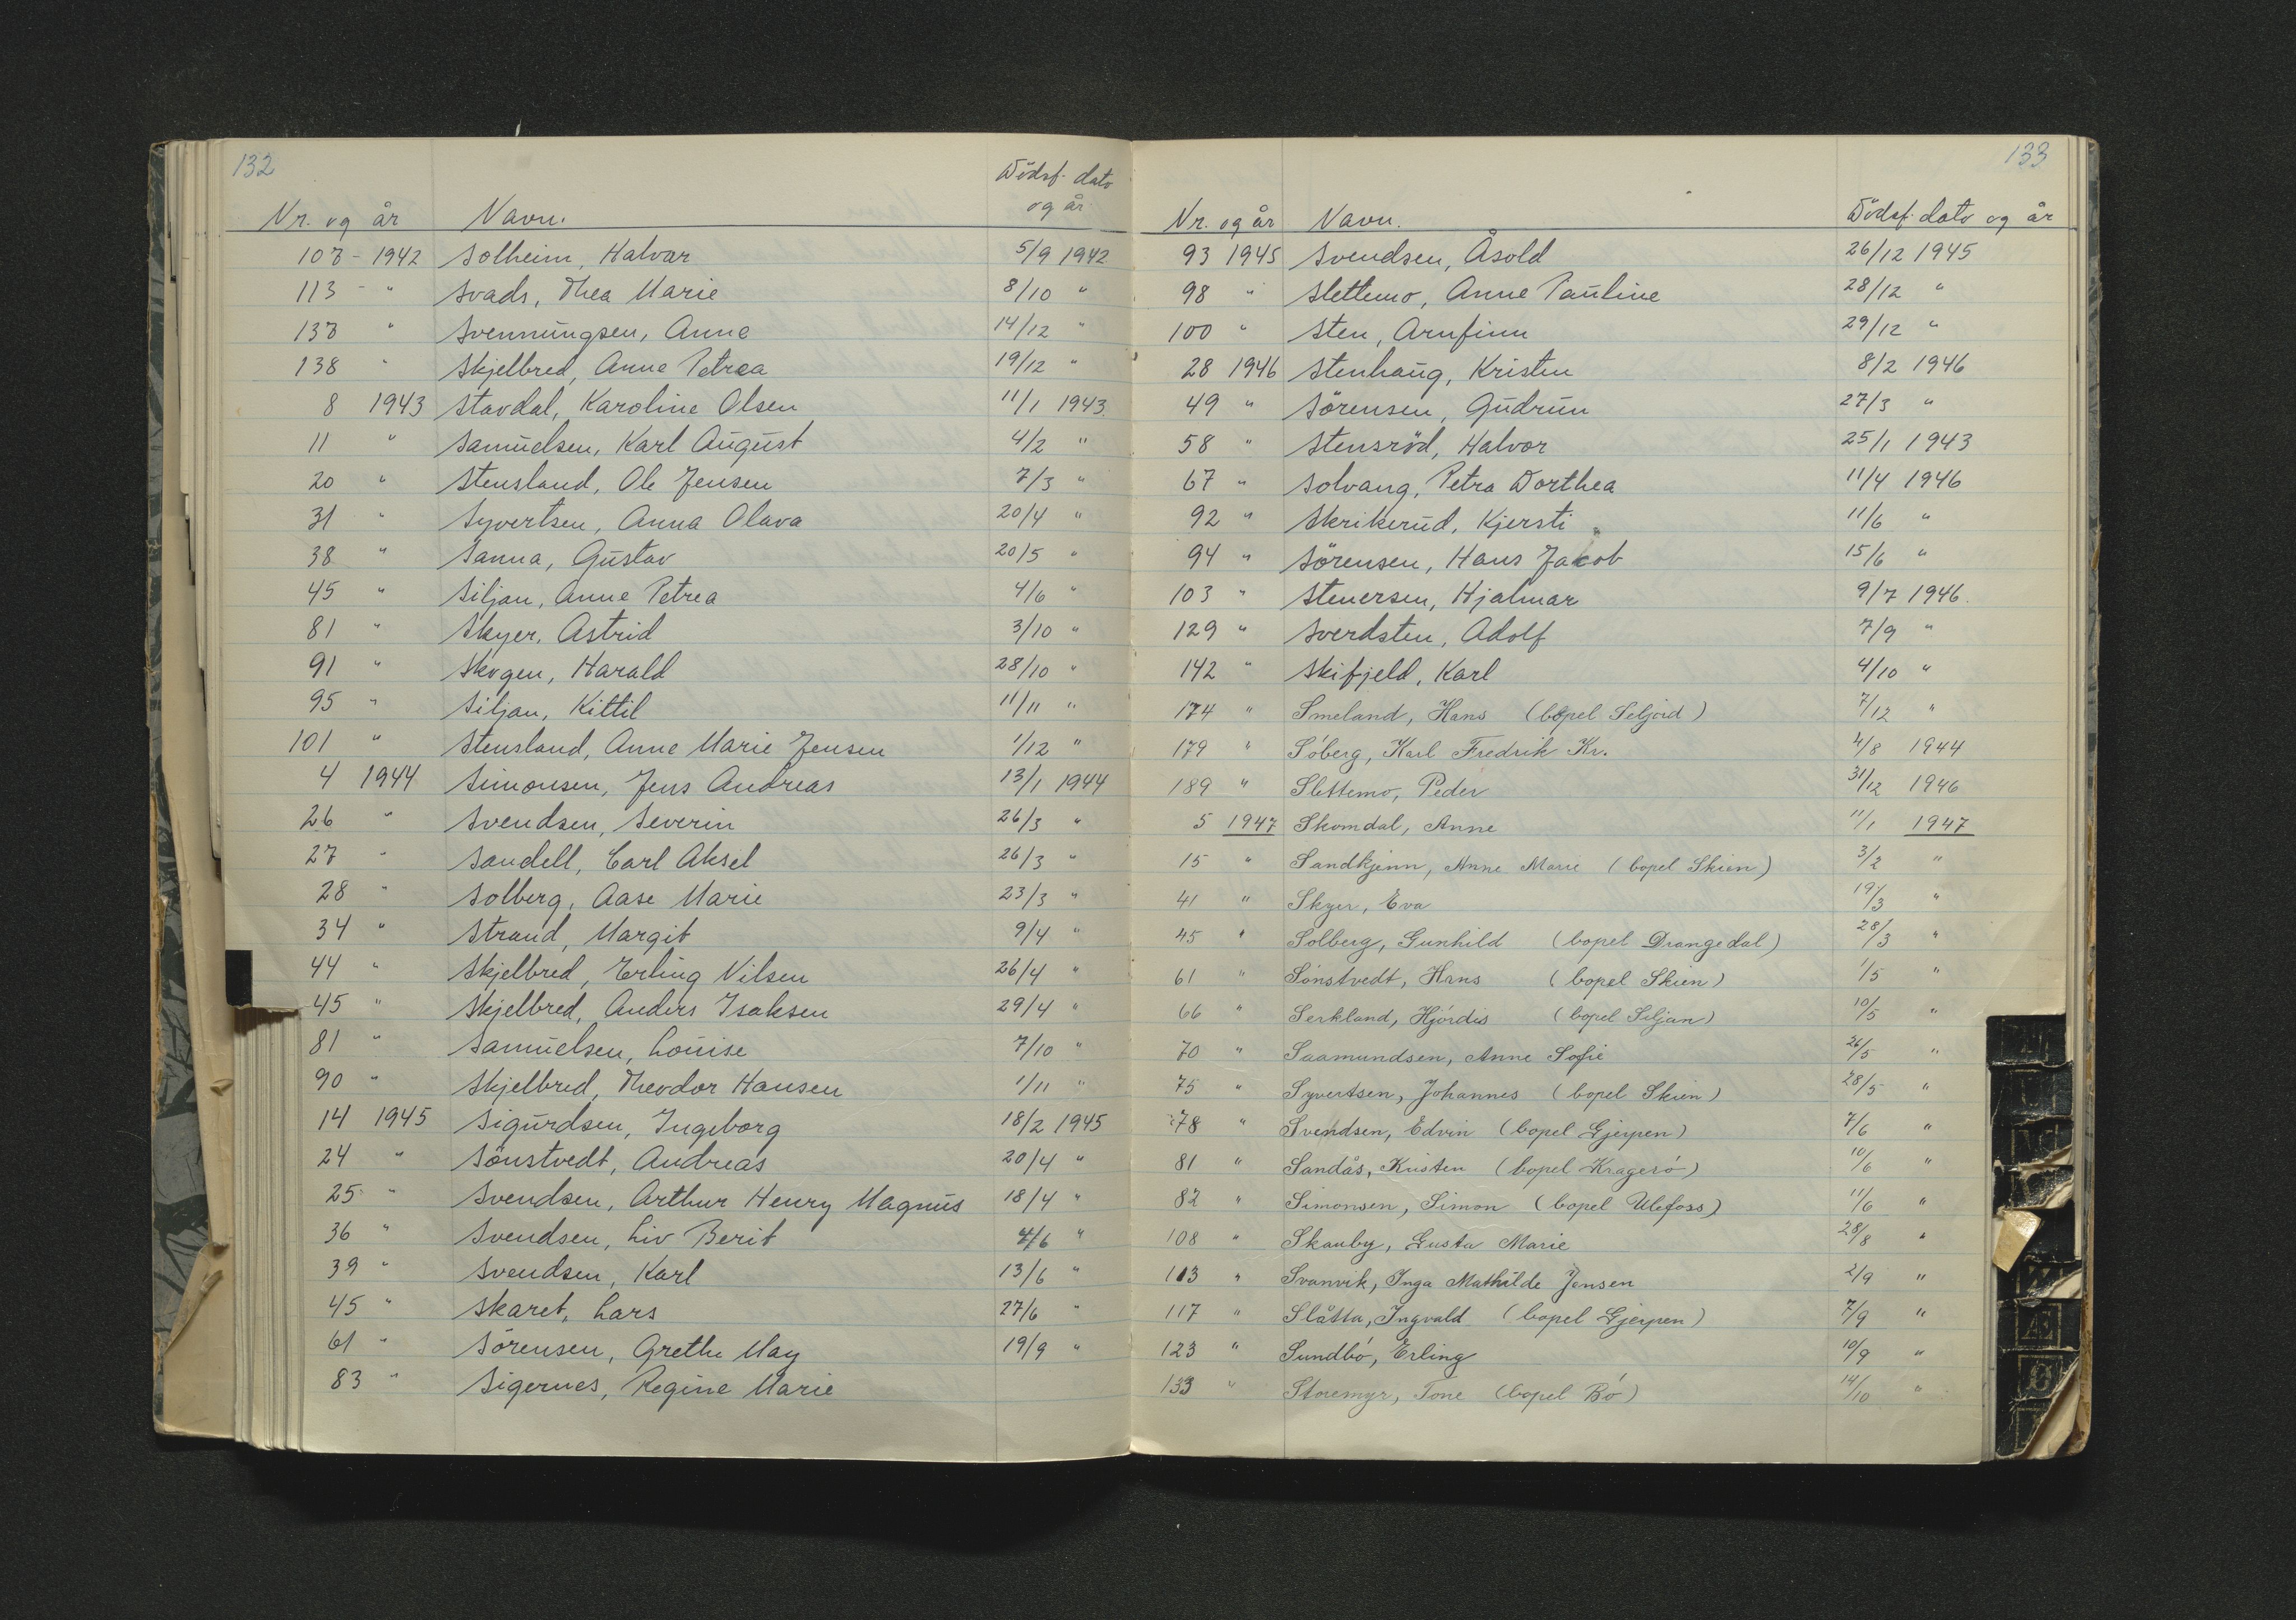 132
Dödsf. dato
Nr. og år Navn. og år
107 - 1942 Solheim, Halvar 5/9 1942
113 - " Svads, Thea Marie 8/10 "
137 " Svennungsen, Anne 14/12 "
138 " Skjelbred, Anne Petrea 19/12 "
8 1943 Stavdal, Karoline Olsen 11/1 1943
11 " Samuelsen, Karl August 4/2 "
20 " Stensland, Ole Jensen 7/3 "
31 " Syvertsen, Anna Olava 20/4 "
38 " Sanna, Gustav 20/5 "
45 " Siljan, Anne Petrea 4/6 "
81 " Skyer, Astrid 3/10 "
91 " Skogen, Harald 28/10 "
95 " Siljan, Kittil 11/11 "
101 " Stensland, Anne Marie Jensen 1/12 "
4 1944 Simonsen, Jens Andreas 13/1 1944
26 " Svendsen, Severin 26/3 "
27 " Sandell, Carl Aksel 26/3 "
28 " Solberg, Aase Marie 23/3 "
34 " Strand, Margit 9/4 "
44 " Skjelbred, Erling Nilsen 26/4 "
45 " Skjelbred, Anders Isaksen 29/4 "
81 " Samuelsen, Louise 7/10 "
90 " Skjelbred, Theodor Hansen 1/11 "
14 1945 Sigurdsen, Ingeborg 18/2 1945
24 " Sönstvedt, Andreas 20/4 "
25 " Svendsen, Arthur Henry Magnus 18/4 "
36 " Svendsen, Liv Berit 4/6 "
39 " Svendsen, Karl 13/6 "
45 " Skaret, Lars 27/6 "
61 " Sörensen, Grethe May 19/9 "
83 " Sigernes, Regine Marie
133
Nr. og år Navn. Dödsf. dato og år
93 1945 Svendsen, Åsold 26/12 1945
98 " Slettemo, Anne Pauline 28/12 "
100 " Sten, Arnfinn 29/12 "
28 1946 Stenhaug, Kristen 8/2 1946
49 " Sörensen, Gudrun 27/3 "
58 " Stensröd, Halvor 25/1 1943
67 " Solvang, Petra Dorthea 11/4 1946
92 " Skrikerud, Kjersti 11/6 "
94 " Sörensen, Hans Jacob 15/6 "
103 " Stenersen, Hjalmar 9/7 1946.
129 " Sverdsten, Adolf 7/9 "
142 " Skifjeld, Karl 4/10 "
174 " Smeland, Hans (bopel Seljord) 7/12 "
179 " Söberg, Karl Fredrik Kr. 4/8 1944
189 " Slettemo, Peder 31/12 1946
5 1947 Skomdal, Anne 11/1 1947
15 " Sandkjenn, Anne Marie (bopel Skien) 3/2 "
41 " Skyer, Eva 19/3 "
45 " Solberg, Gunhild (bopel Drangedal) 28/3 "
61 " Sönstvedt, Hans (bopel Skien) 1/5 "
66 " Serkland, Hjördis (bopel Siljan) 10/5 "
70 " Saamundsen, Anne Sofie 26/5 "
75 " Syvertsen, Johannes (bopel Skien) 28/5 "
78 " Svendsen, Edvin (bopel Gjerpen) 7/6 "
81 " Sandås, Kristen (bopel Kragerö) 10/6 "
82 " Simonsen, Simon (bopel Ulefoss) 11/6 "
108 " Skauby, Gusta Marie 28/8 "
113 " Svanvik, Inga Mathilde Jensen 2/9 "
117 " Slåtta, Ingvald (bopel Gjerpen) 7/9 "
123 " Sundbö, Erling 10/9 "
133 " Storemyr, Tone (bopel Bö) 14/10 "
Æ
Ø